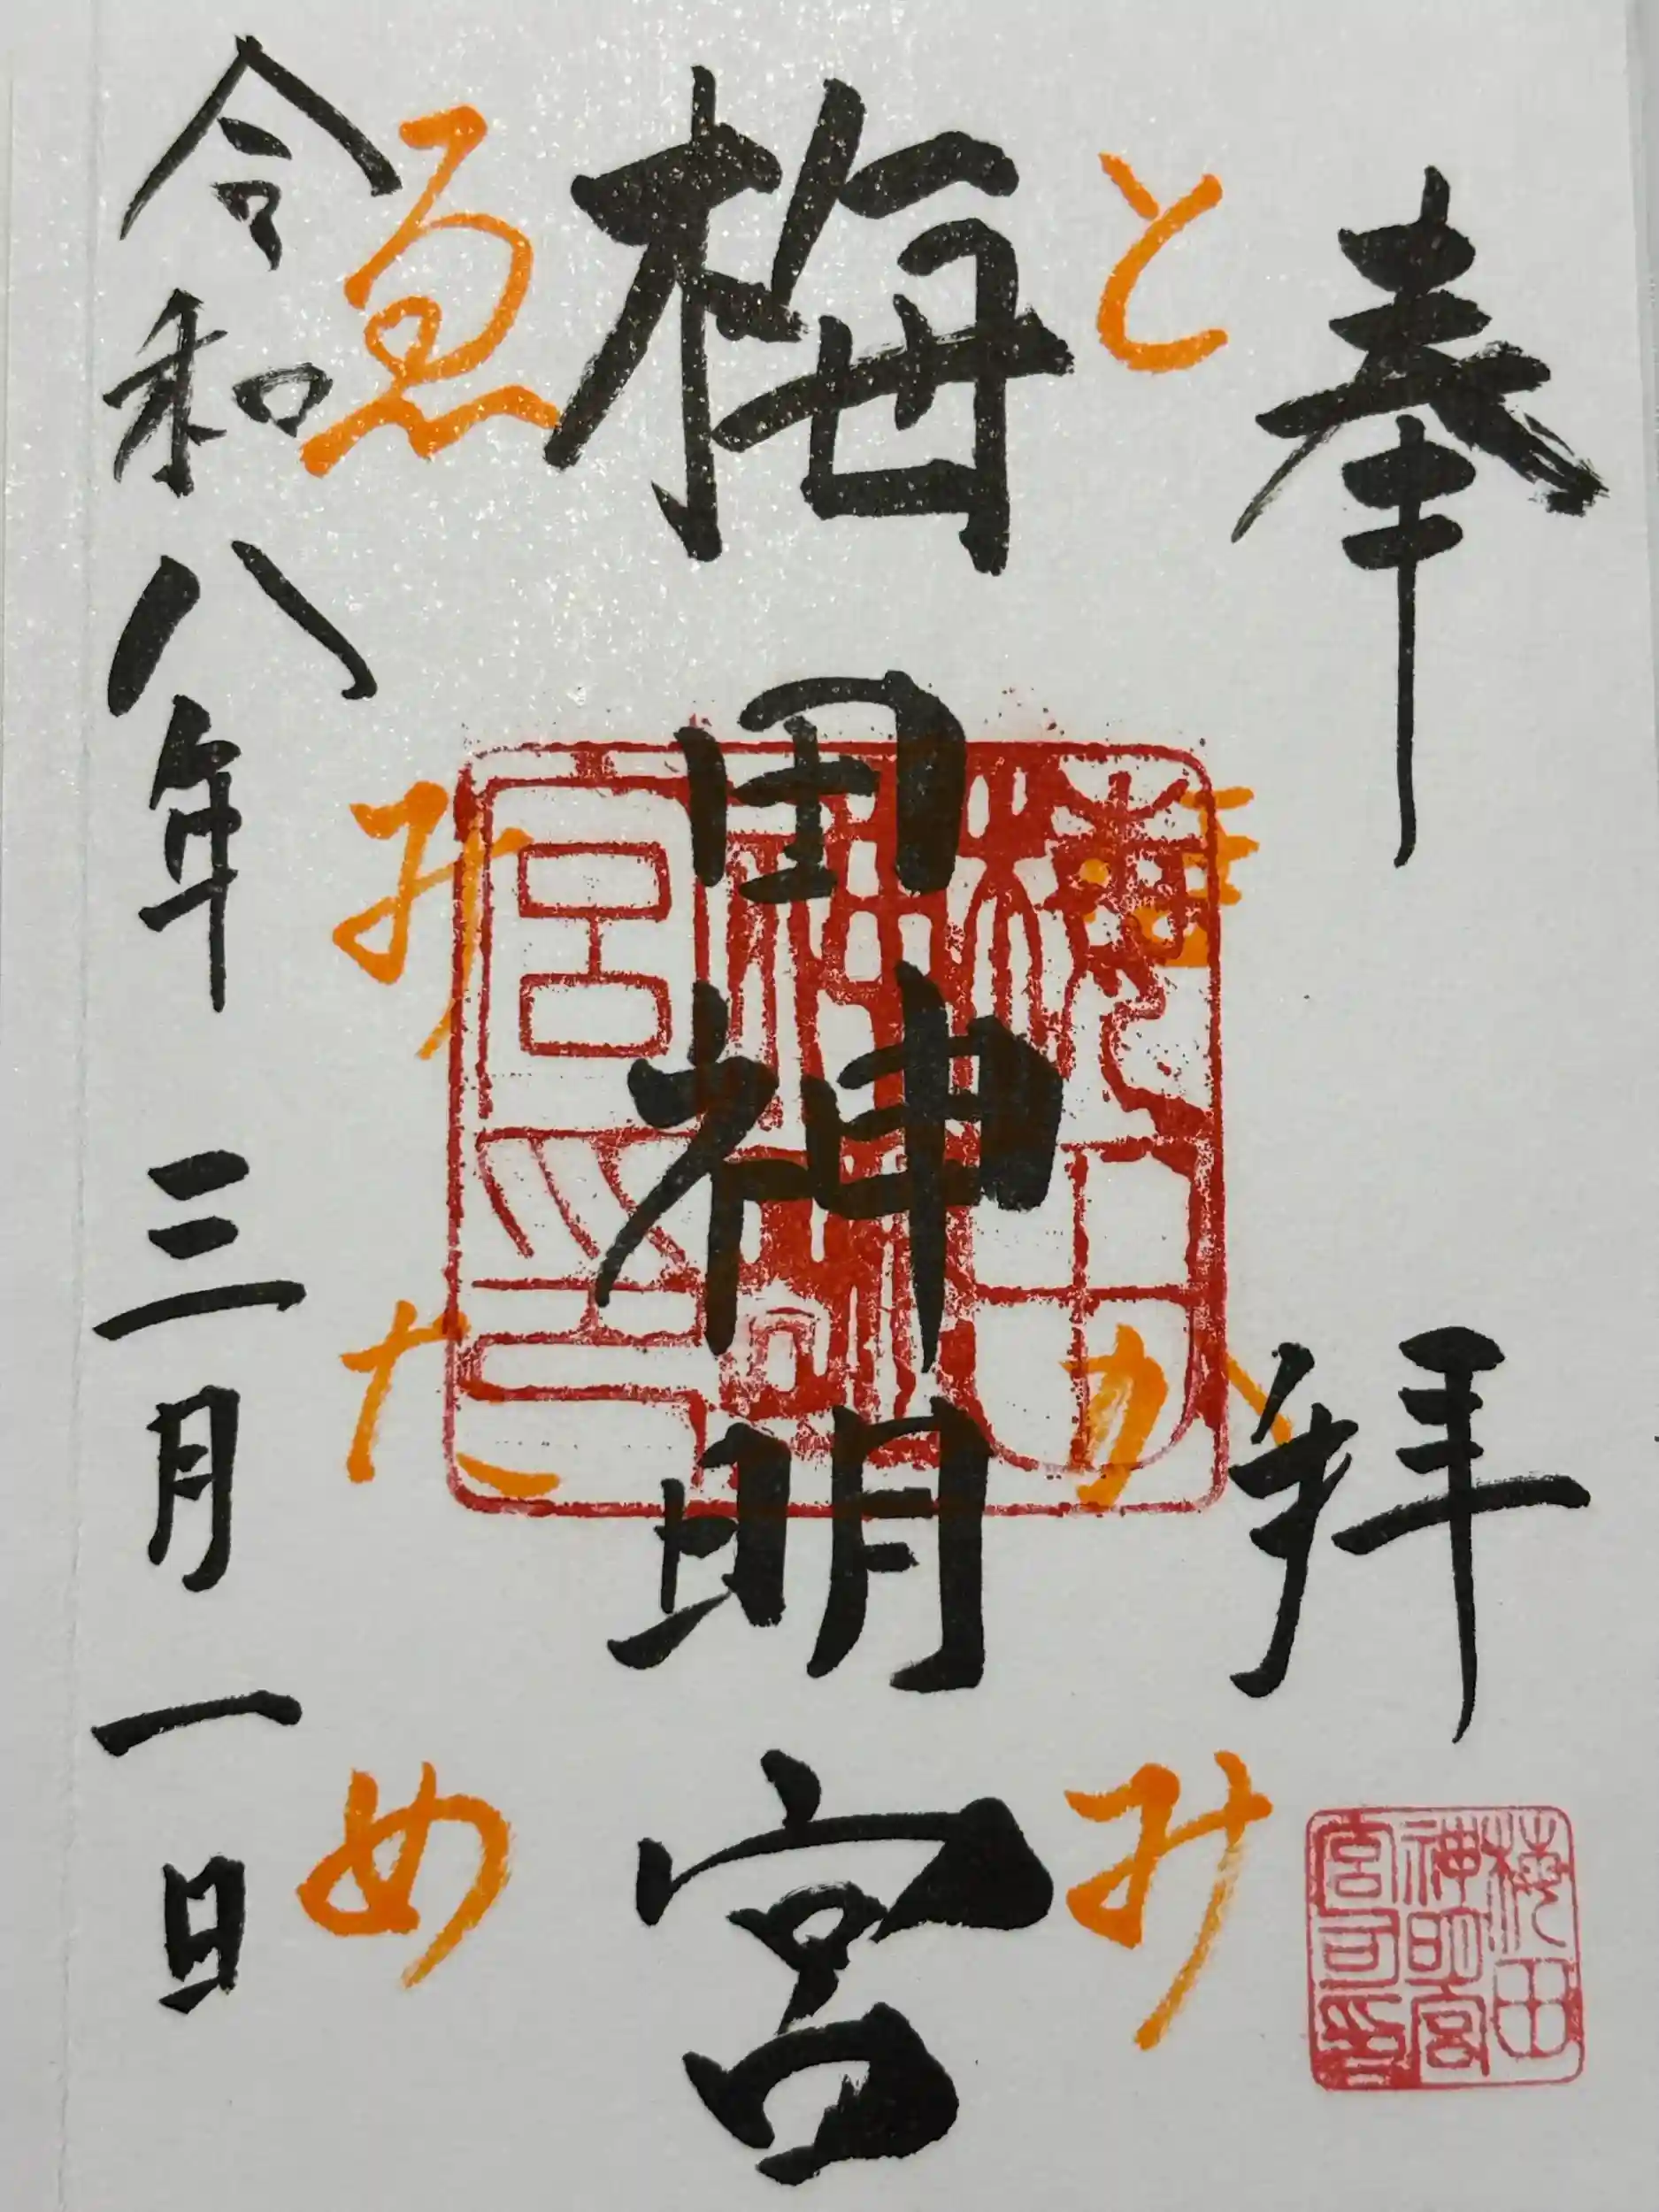 奉拝
とほかみ
梅田神明宮
ゑみため
令和八年三月一日
梅田神明宮印
梅田神明宮宮司印